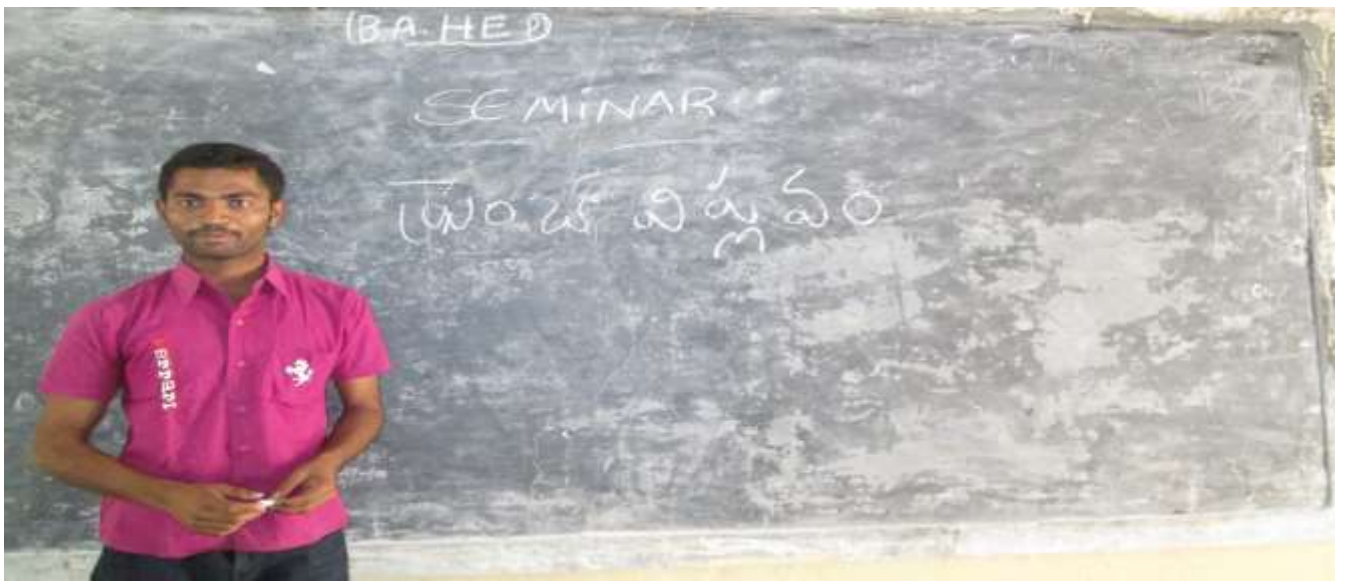 (BA. HEP)
SEMINAR
ఫ్రెంచ్ విప్లవం